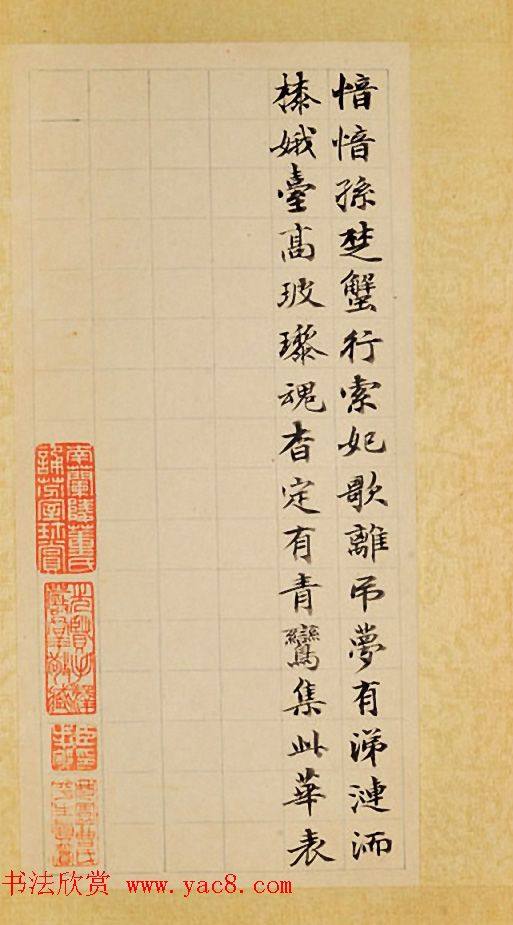 愔愔孫楚蟹行索妃歌離吊夢有涕漣洏
榛娥臺高玻瓈魂杳定有青鸞集此華表
南蘭陵董氏
誦芬室珍賞
书法欣赏 www.yac8.com